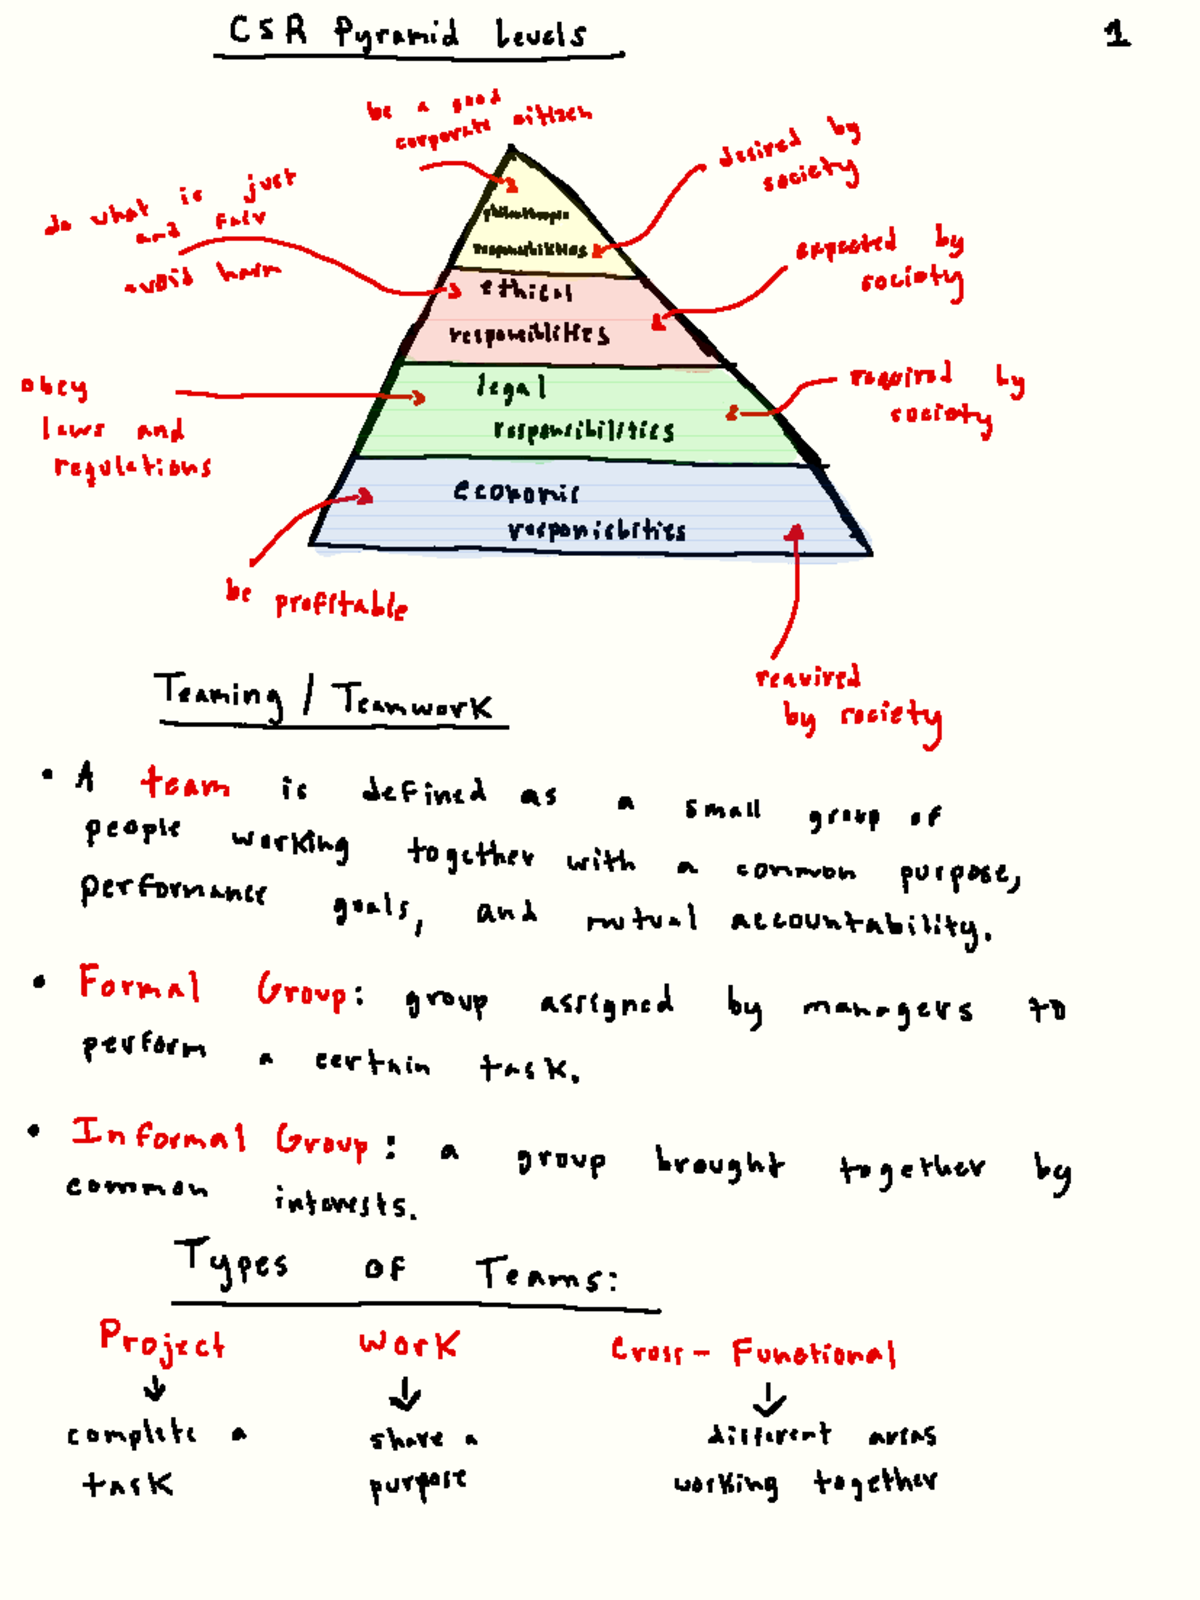 CSR Pyramid Levels
1
be a good
corporate citizen
desired by
society
do what is just
and fair
avoid harm
philanthropic
responsibilities
expected by
society
ethical
responsibilities
obey
laws and
regulations
legal
responsibilities
required by
society
economic
responsibilities
be profitable
required
by society
Teaming / Teamwork
• A team is defined as a small group of
people working together with a common purpose,
performance goals, and mutual accountability.
• Formal Group: group assigned by managers to
perform a certain task.
• Informal Group: a group brought together by
common interests.
Types of Teams:
Project Work Cross-Functional
↓ ↓ ↓
complete a share a different areas
task purpose working together